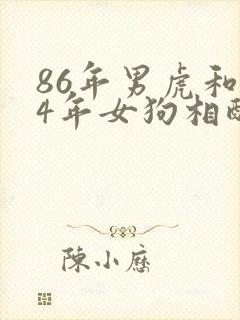 86年男虎和
4年女狗相配
陳小曆